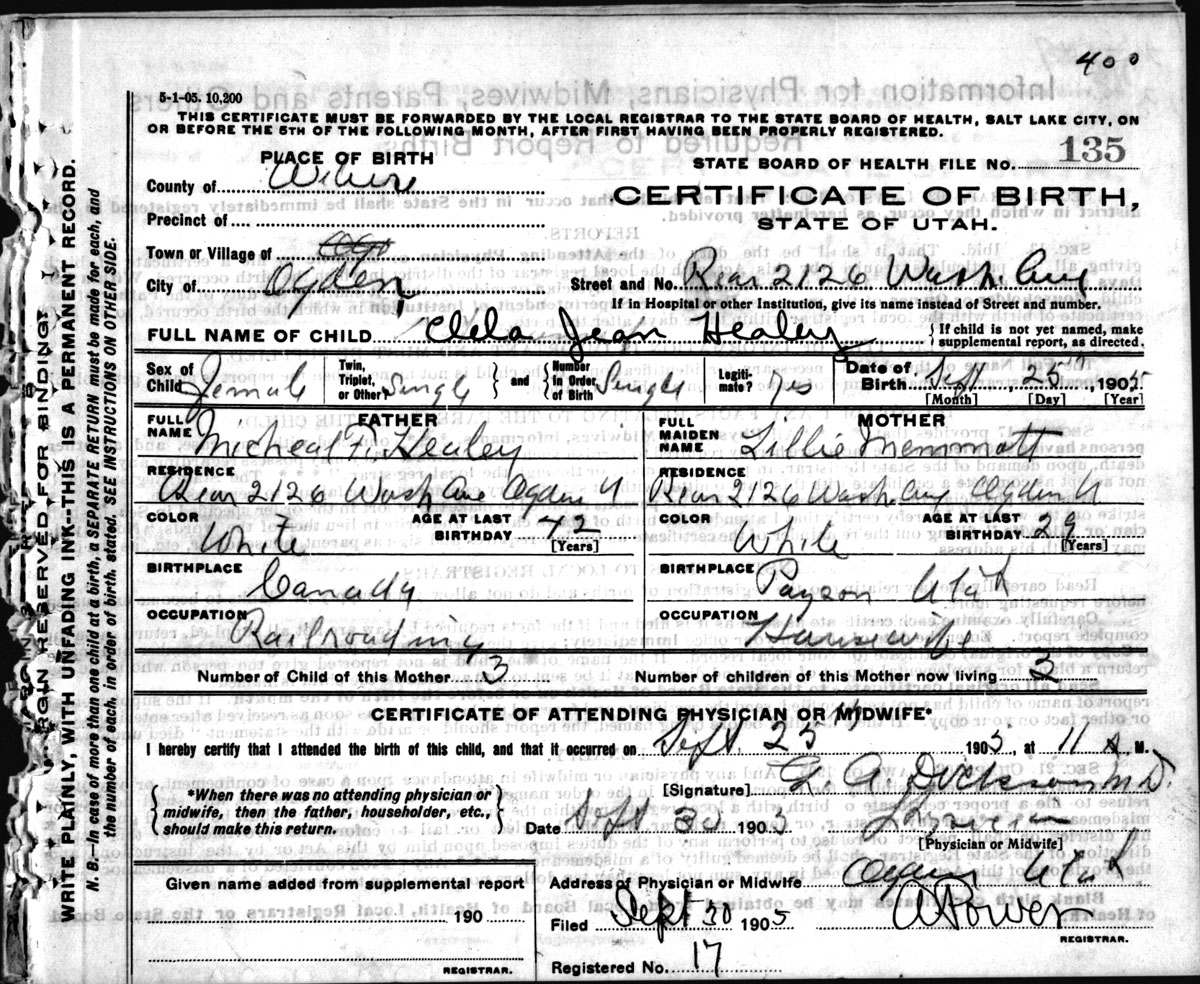 400
5-1-05. 10,200
THIS CERTIFICATE MUST BE FORWARDED BY THE LOCAL REGISTRAR TO THE STATE BOARD OF HEALTH, SALT LAKE CITY, ON
OR BEFORE THE 5TH OF THE FOLLOWING MONTH, AFTER FIRST HAVING BEEN PROPERLY REGISTERED.
PLACE OF BIRTH
STATE BOARD OF HEALTH FILE No. 135
County of
CERTIFICATE OF BIRTH,
STATE OF UTAH.
Precinct of
Town or Village of
City of Ogden Street and No. Rear 2126 Wash. Ave
If in Hospital or other Institution, give its name instead of Street and number.
FULL NAME OF CHILD Jean Healey {If child is not yet named, make supplemental report, as directed.
Sex of Child Female Twin, Triplet, or Other Single } and { Number in Order of Birth Single Legiti-mate? yes Date of Birth Sept. 25th, 1905
[Month] [Day] [Year]
FATHER MOTHER
FULL NAME Micheal F. Healey FULL MAIDEN NAME Lillie Memmott
RESIDENCE Rear 2126 Wash Ave Ogden U RESIDENCE Rear 2126 Wash. Ave Ogden U
COLOR White AGE AT LAST BIRTHDAY 42 [Years] COLOR White AGE AT LAST BIRTHDAY 29 [Years]
BIRTHPLACE Canada BIRTHPLACE Payson Utah
OCCUPATION Railroading OCCUPATION Housewife
Number of Child of this Mother 3 Number of children of this Mother now living 3
CERTIFICATE OF ATTENDING PHYSICIAN OR MIDWIFE*
I hereby certify that I attended the birth of this child, and that it occurred on Sept. 25 1905, at 11 A M.
{ *When there was no attending physician or midwife, then the father, householder, etc., should make this return. }
[Signature] Dickson M.D.
Date Sept 30 1905
[Physician or Midwife]
Given name added from supplemental report
Address of Physician or Midwife Ogden Utah
190
Filed Sept 30 1905
REGISTRAR.
REGISTRAR.
Registered No. 17
MARGIN RESERVED FOR BINDING.
WRITE PLAINLY, WITH UNFADING INK--THIS IS A PERMANENT RECORD.
N. B.--In case of more than one child at a birth, a SEPARATE RETURN must be made for each, and
the number of each, in order of birth, stated. SEE INSTRUCTIONS ON OTHER SIDE.